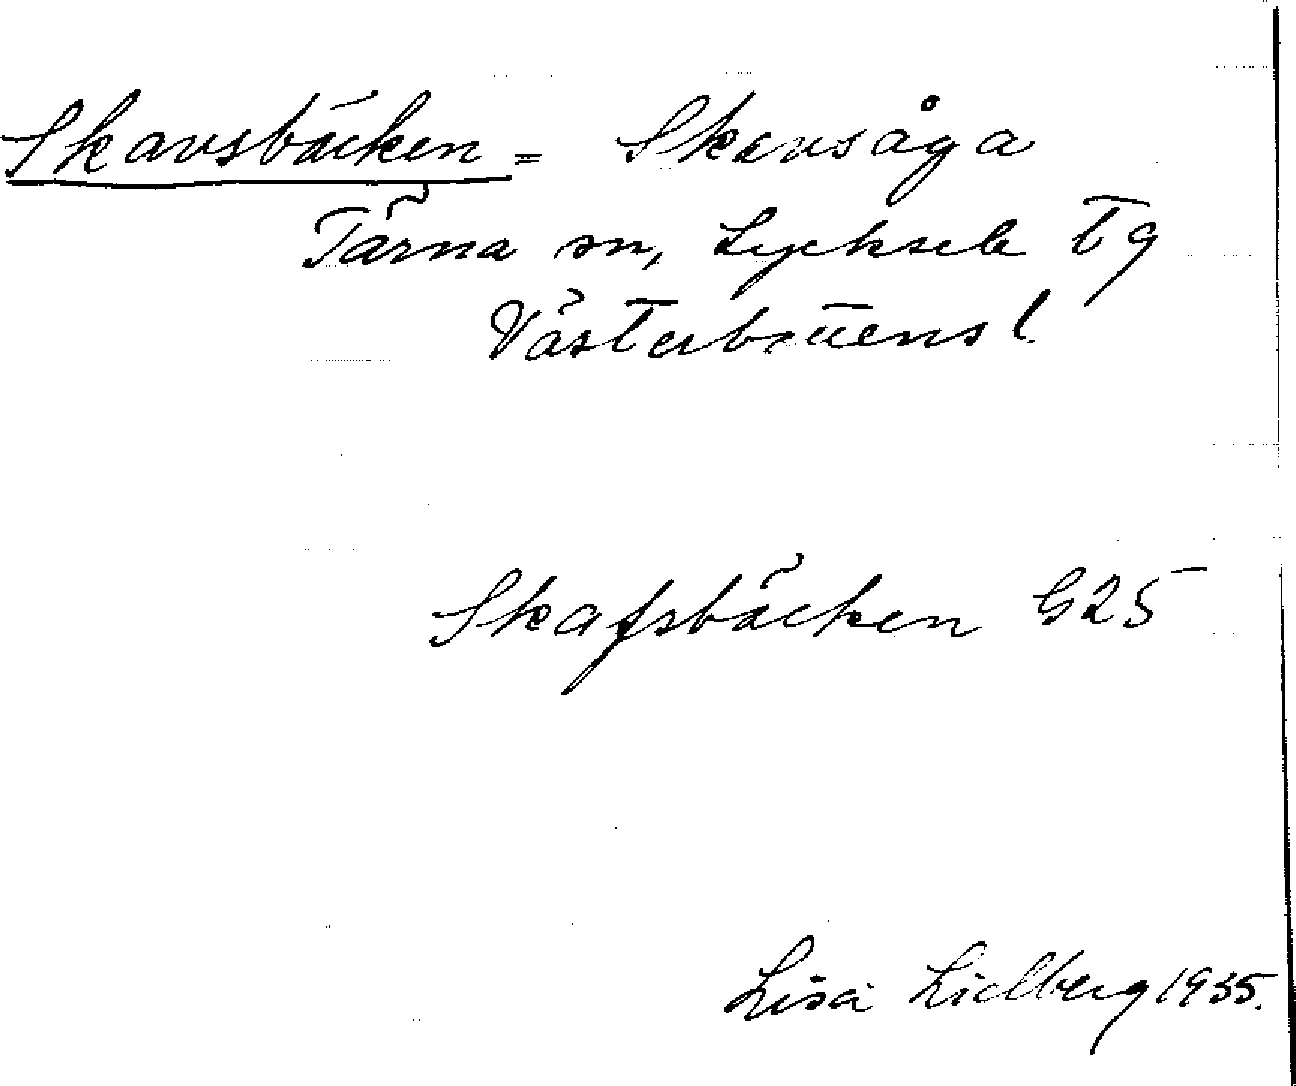 Skavsbäcken = Skavsåga
Tärna sn, Lycksele tg
Västerbottens l.
Skafsbäcken G25
Lisa Lidberg 1935.